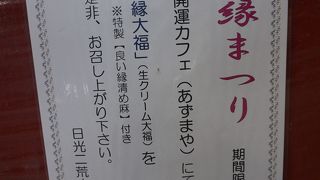 縁まつり
期間限
開運カフェ(あずまや)にて
縁大福」(生クリーム大福)を
※特製【良い縁清め麻】付き
是非、お召し上がり下さい。
日光二荒